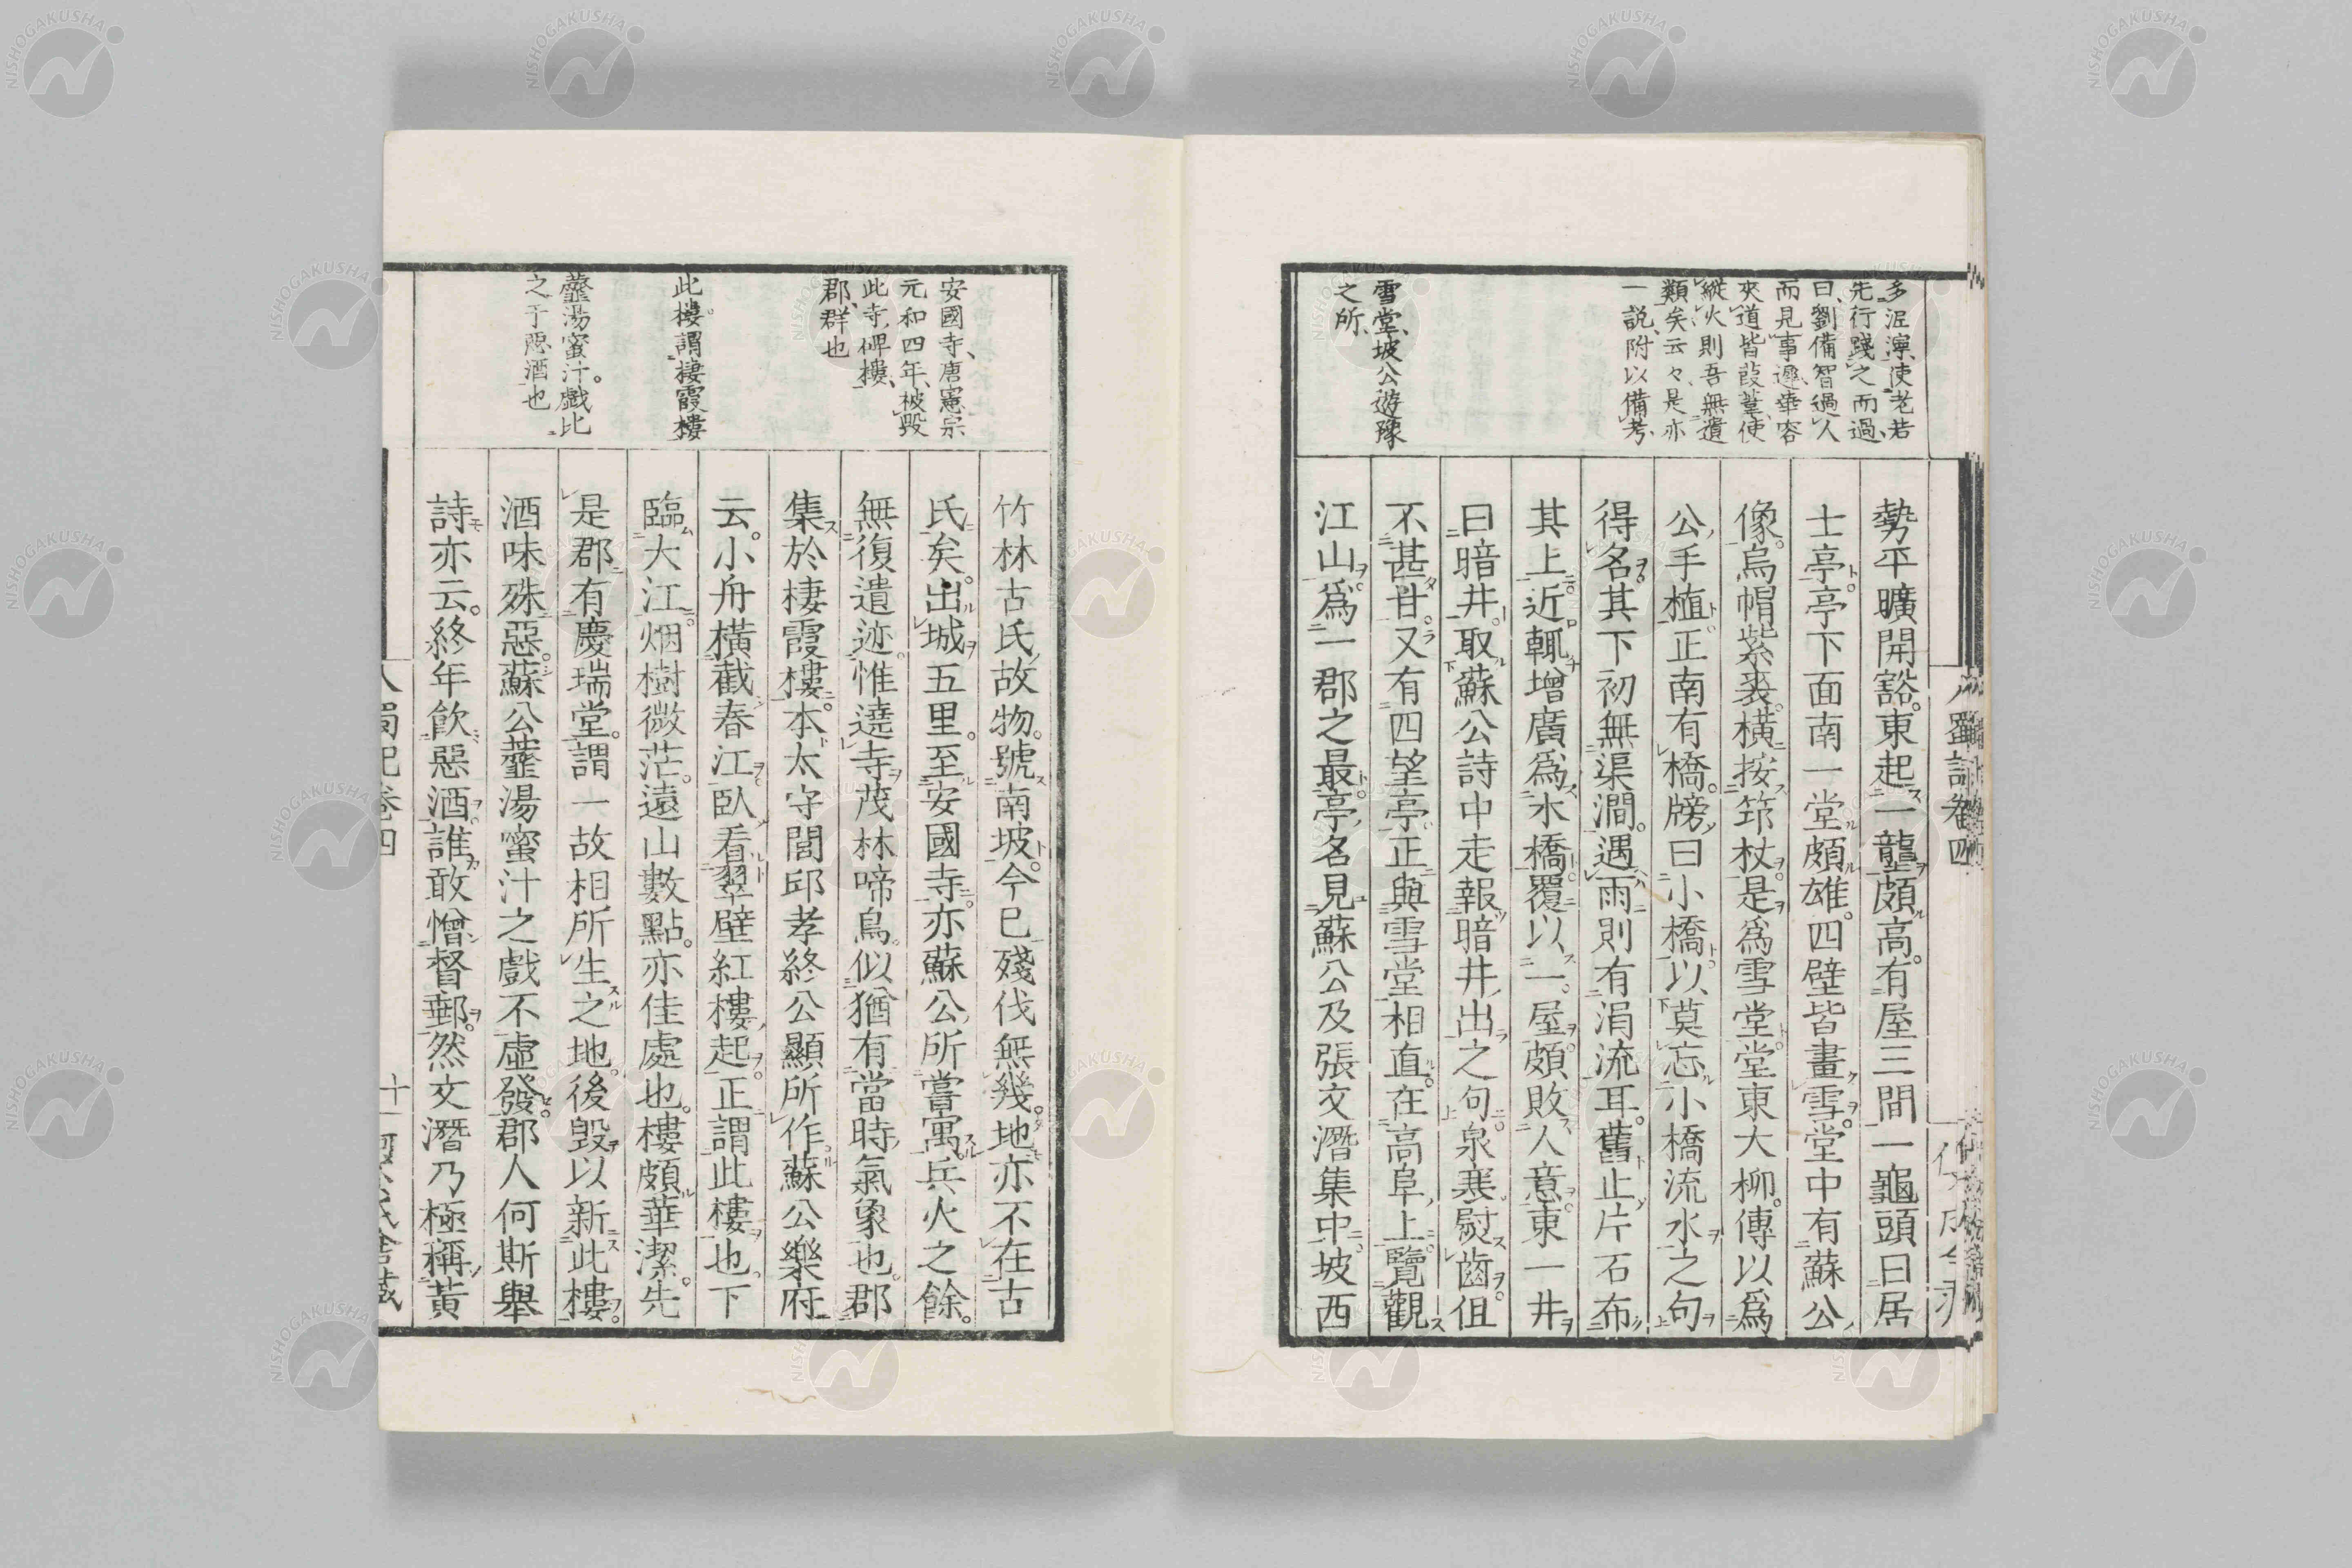 多泥濘、使老若
先行踐之而過
曰、劉備智過人
而見事遲、華容
夾道皆葭葦、使
縱火則吾無遺
類矣云々、是亦
一說、附以備考、
雪堂、坡公遊豫
之所、
勢平曠開豁。東起一壟頗高。有屋三間一龜頭曰居
士亭。亭下面南一堂頗雄。四壁皆畫雪。堂中有蘇公
像。烏帽紫裘。橫按筇杖。是爲雪堂。堂東大柳。傳以爲
公手植。正南有橋。牓曰小橋。以莫忘小橋流水之句
得名。其下初無渠澗。遇雨則有涓流耳。舊止片石布
其上。近輒增廣爲木橋。覆以一屋。頗敗人意。東一井
曰暗井。取蘇公詩中走報暗井出之句。泉寒熨齒。但
不甚甘。又有四望亭。正與雪堂相直。在高阜上。覽觀
江山。爲一郡之最。亭名見蘇公及張文潛集中。坡西
蜀記卷四
安國寺、唐憲宗
元和四年、被毀
此寺、碑樓、
郡、群也
此樓。謂棲霞樓
虀湯蜜汁。戲比
之于惡酒也
竹林古氏故物。號南坡。今已殘伐無幾。地亦不在古
氏矣。出城五里。至安國寺。亦蘇公所嘗寓。兵火之餘。
無復遺迹。惟遶寺茂林啼鳥。似猶有當時氣象也。郡
集於棲霞樓。本太守閭邱孝終公顯所作。蘇公樂府
云。小舟橫截春江。臥看翠壁紅樓起。正謂此樓也。下
臨大江。烟樹微茫。遠山數點。亦佳處也。樓頗華潔。先
是郡有慶瑞堂。謂一故相所生之地。後毀以新此樓。
酒味殊惡。蘇公虀湯蜜汁之戲不虛發。郡人何斯舉
詩亦云。終年飲惡酒。誰敢憎督郵。然文潛乃極稱黃
蜀記卷四
十一